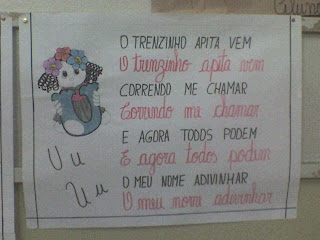 O TRENZINHO APITA VEM
O trenzinho apita vem
CORRENDO ME CHAMAR
Correndo me chamar
E AGORA TODOS PODEM
E agora todos podem
O MEU NOME ADIVINHAR
O meu nome adivinhar
U u
U u